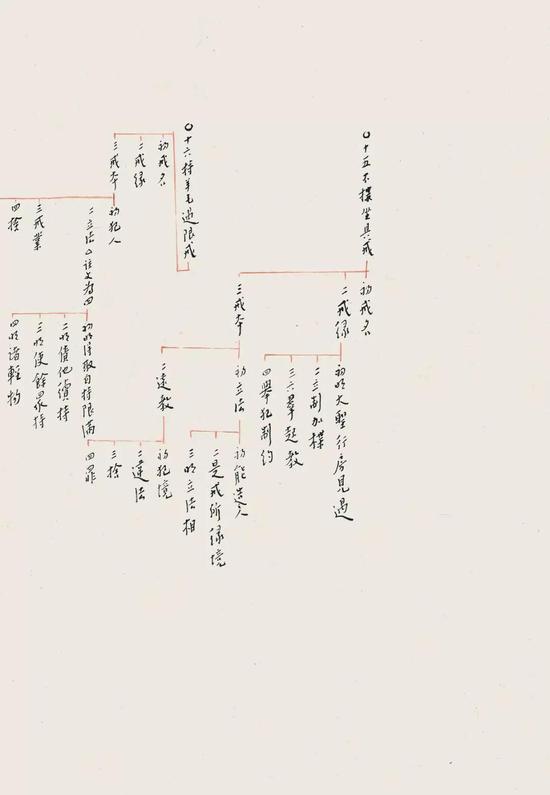 〇十五不揲坐具戒
初戒名
二戒緣
初明大聖行房見過
二立制加揲
三六羣起教
四舉犯制約
三戒本
初立法
初能造人
二是戒所緣境
三明立法相
二違教
初犯境
二違法
三捨
四罪
〇十六持羊毛過限戒
初戒名
二戒緣
三戒本
初犯人
二立法△註文為四
初明得取自持限滿
二明倩他擔持
三明使餘眾持
四明諸輕物
三戒業
四捨